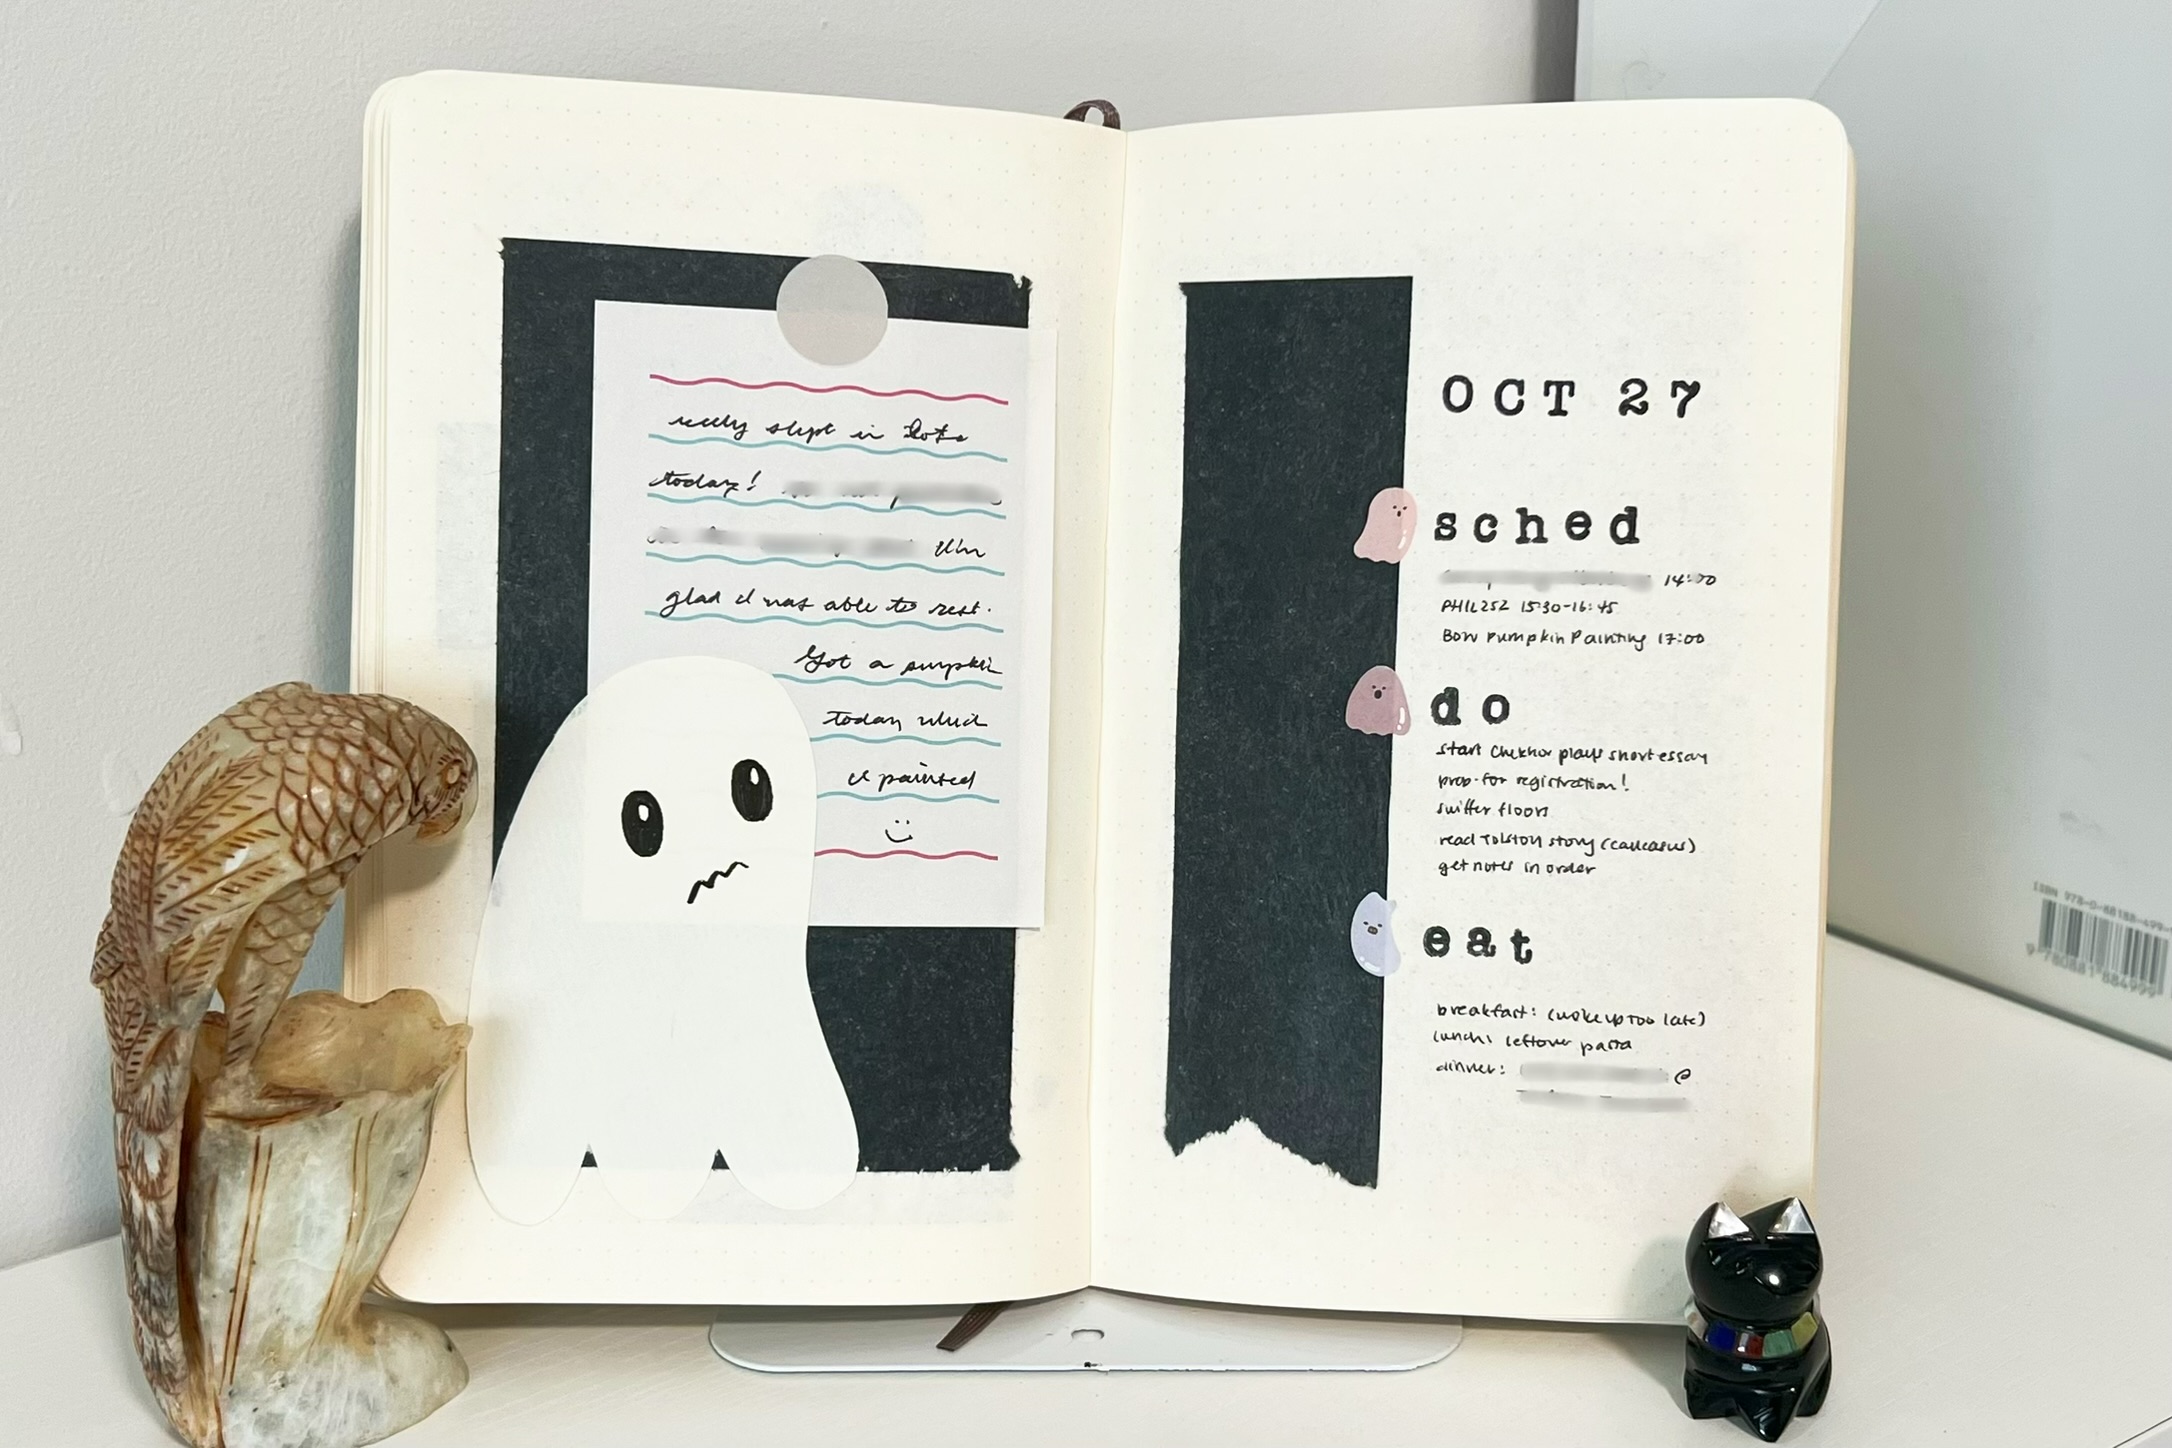 really slept in lots
today!
I'm
glad I was able to rest.
Got a pumpkin
today which
I painted
OCT 27
sched
14:00
PHIL252 15:30-16:45
Bow Pumpkin Painting 17:00
do
start Chekhov plays short essay
prep for registration!
swiffer floors
read Tolstoy story (caucasus)
get notes in order
eat
breakfast: (woke up too late)
lunch: leftover pasta
dinner: @
ISBN 978-0-88188-499-
9 780881 884999